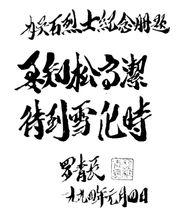 石烈士纪念册题
要知松高潔
待到雪化時
罗青长
一九九四年元月四日